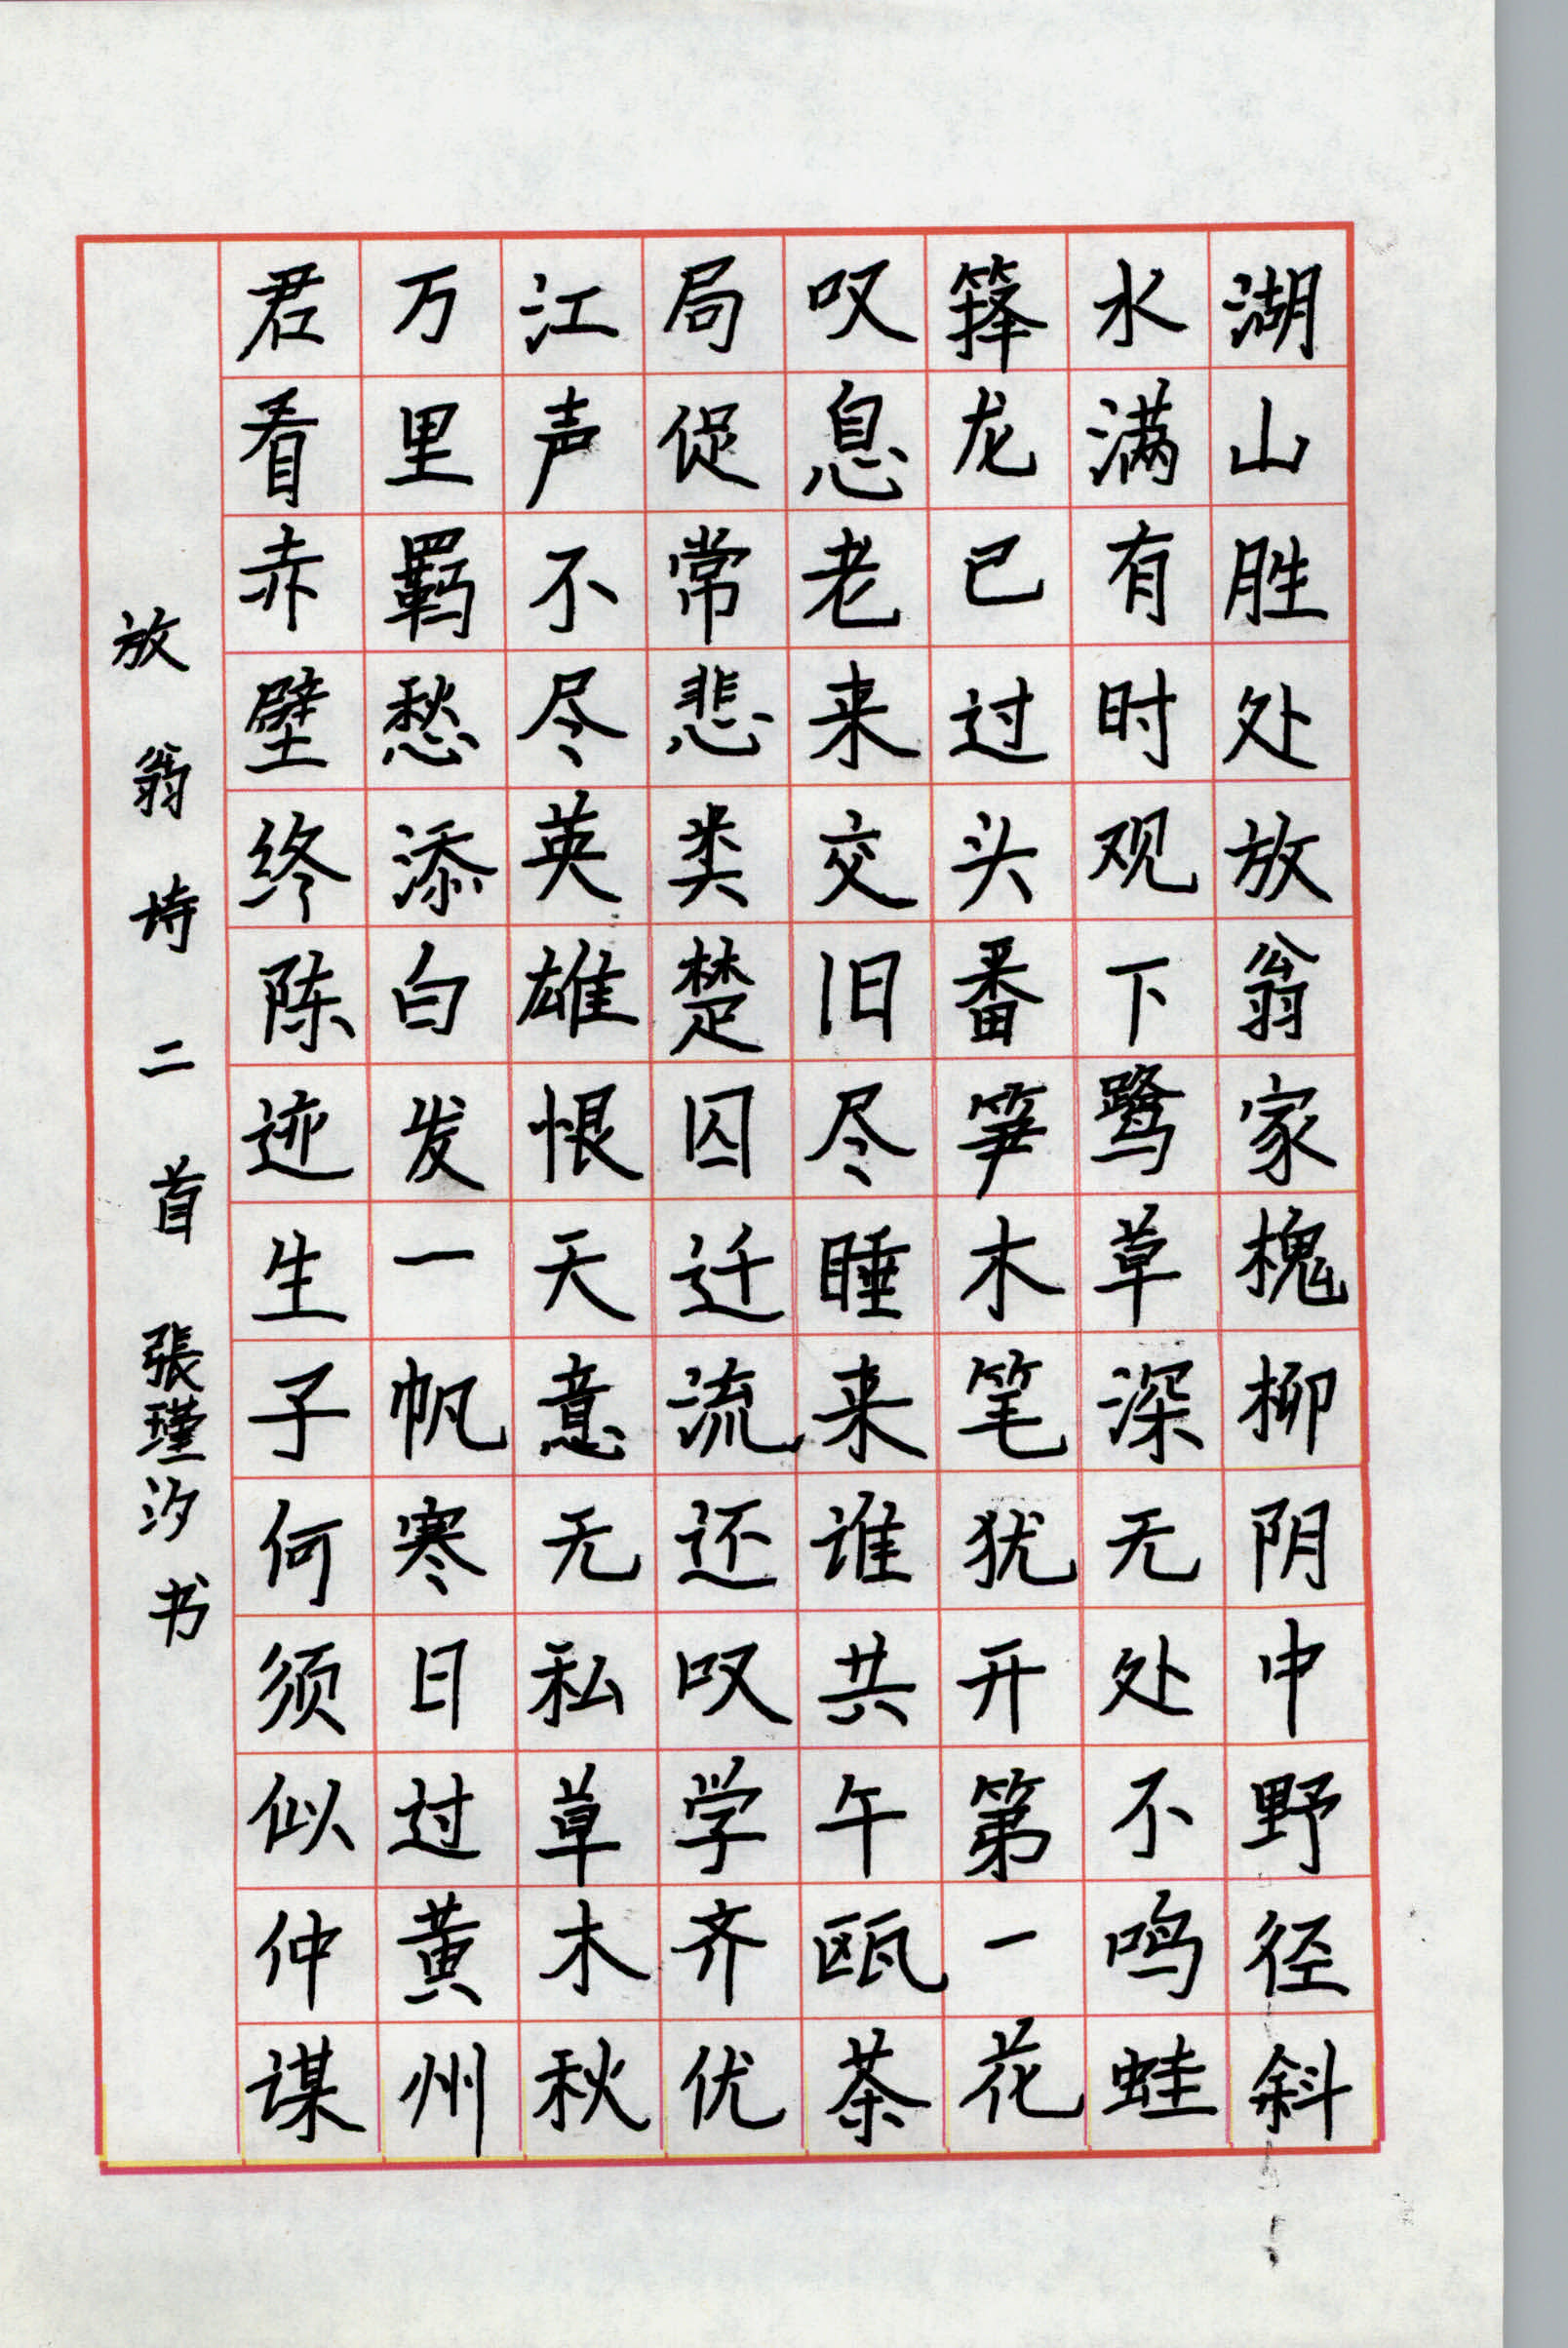 湖山胜处放翁家槐柳阴中野径斜
水满有时观下鹭草深无处不鸣蛙
箨龙已过头番笋木笔犹开第一花
叹息老来交旧尽睡来谁共午瓯茶
局促常悲类楚囚迁流还叹学齐优
江声不尽英雄恨天意无私草木秋
万里羁愁添白发一帆寒日过黄州
君看赤壁终陈迹生子何须似仲谋
放翁诗二首 張瑾汐书